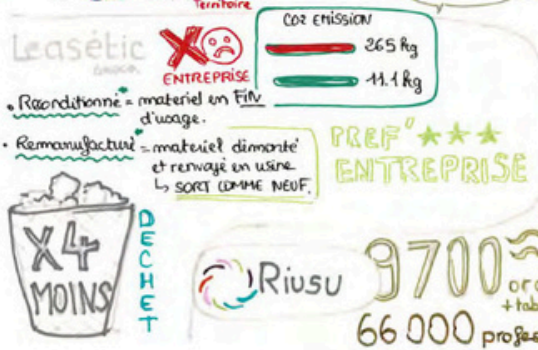 Territoire
CO2 EMISSION
Leasétic
265 kg
ENTREPRISE
11.1 kg
• Reconditionné* = materiel en FIN
d'usage.
• Remanufacturé* = materiel dimonté
et renvoyé en usine
↳ SORT COMME NEUF.
PREF' ★★★
ENTREPRISE
X4
MOINS
DECHET
Riusu
9700
ord
+ tab
66 000 profes